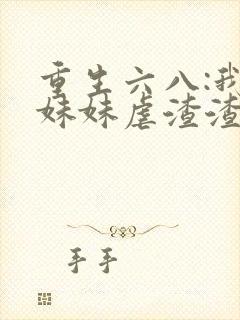 重生六八:我
妹妹虐渣渣
手手